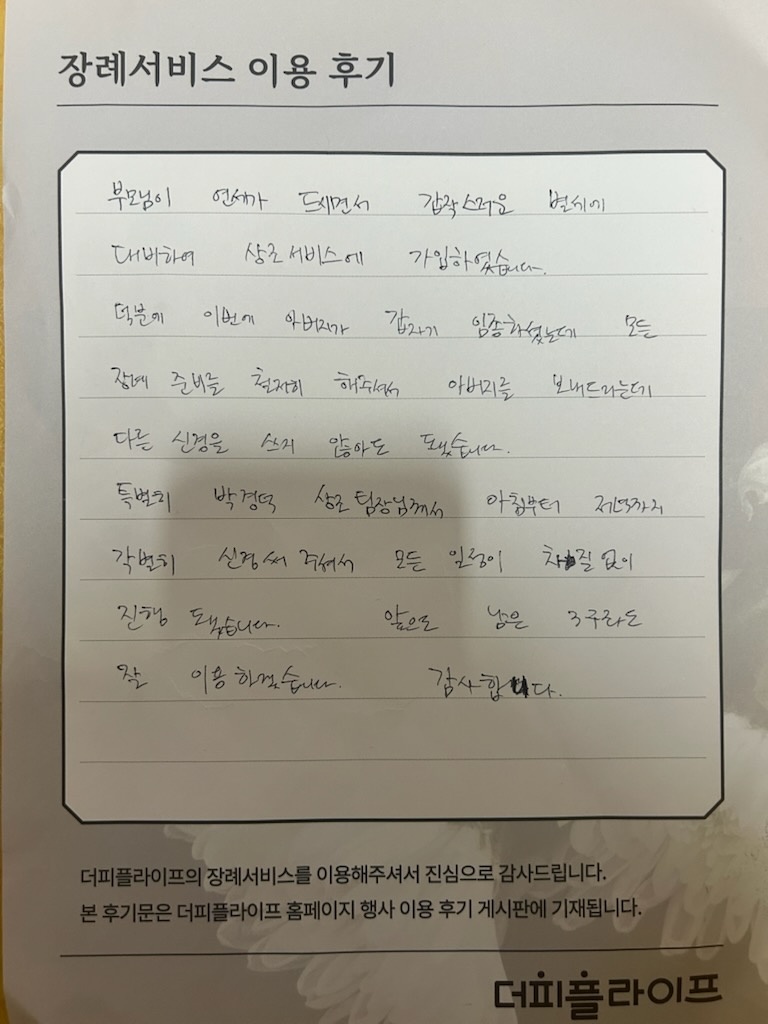 장례서비스 이용 후기
부모님이 연세가 드시면서 갑작스러운 별세에
대비하여 상조서비스에 가입하였습니다.
덕분에 이번에 아버지가 갑자기 임종하셨는데 모든
장례 준비를 철저히 해주셔서 아버지를 보내드리는데
다른 신경을 쓰지 않아도 됐습니다.
특별히 박경덕 상조팀장님께서 아침부터 저녁까지
각별히 신경써 주셔서 모든 일정이 차질 없이
진행 됐습니다. 앞으로 남은 3구좌도
잘 이용하겠습니다. 감사합니다.
더피플라이프의 장례서비스를 이용해주셔서 진심으로 감사드립니다.
본 후기문은 더피플라이프 홈페이지 행사 이용 후기 게시판에 기재됩니다.
더피플라이프